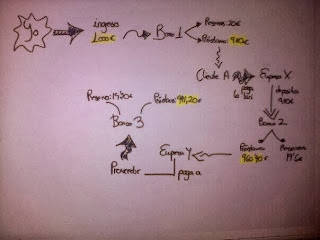 Yo
ingreso
1.000€
Banco 1
Reserva: 20€
Préstamo: 980€
Cliente A
paga
Empresa X
deposita
980€
Banco 2
Préstamo
960'40€
Reserva
19'6€
Empresa Y
paga a
Proveedor
Banco 3
Reserva: 19,20€
Préstamo: 941,20€